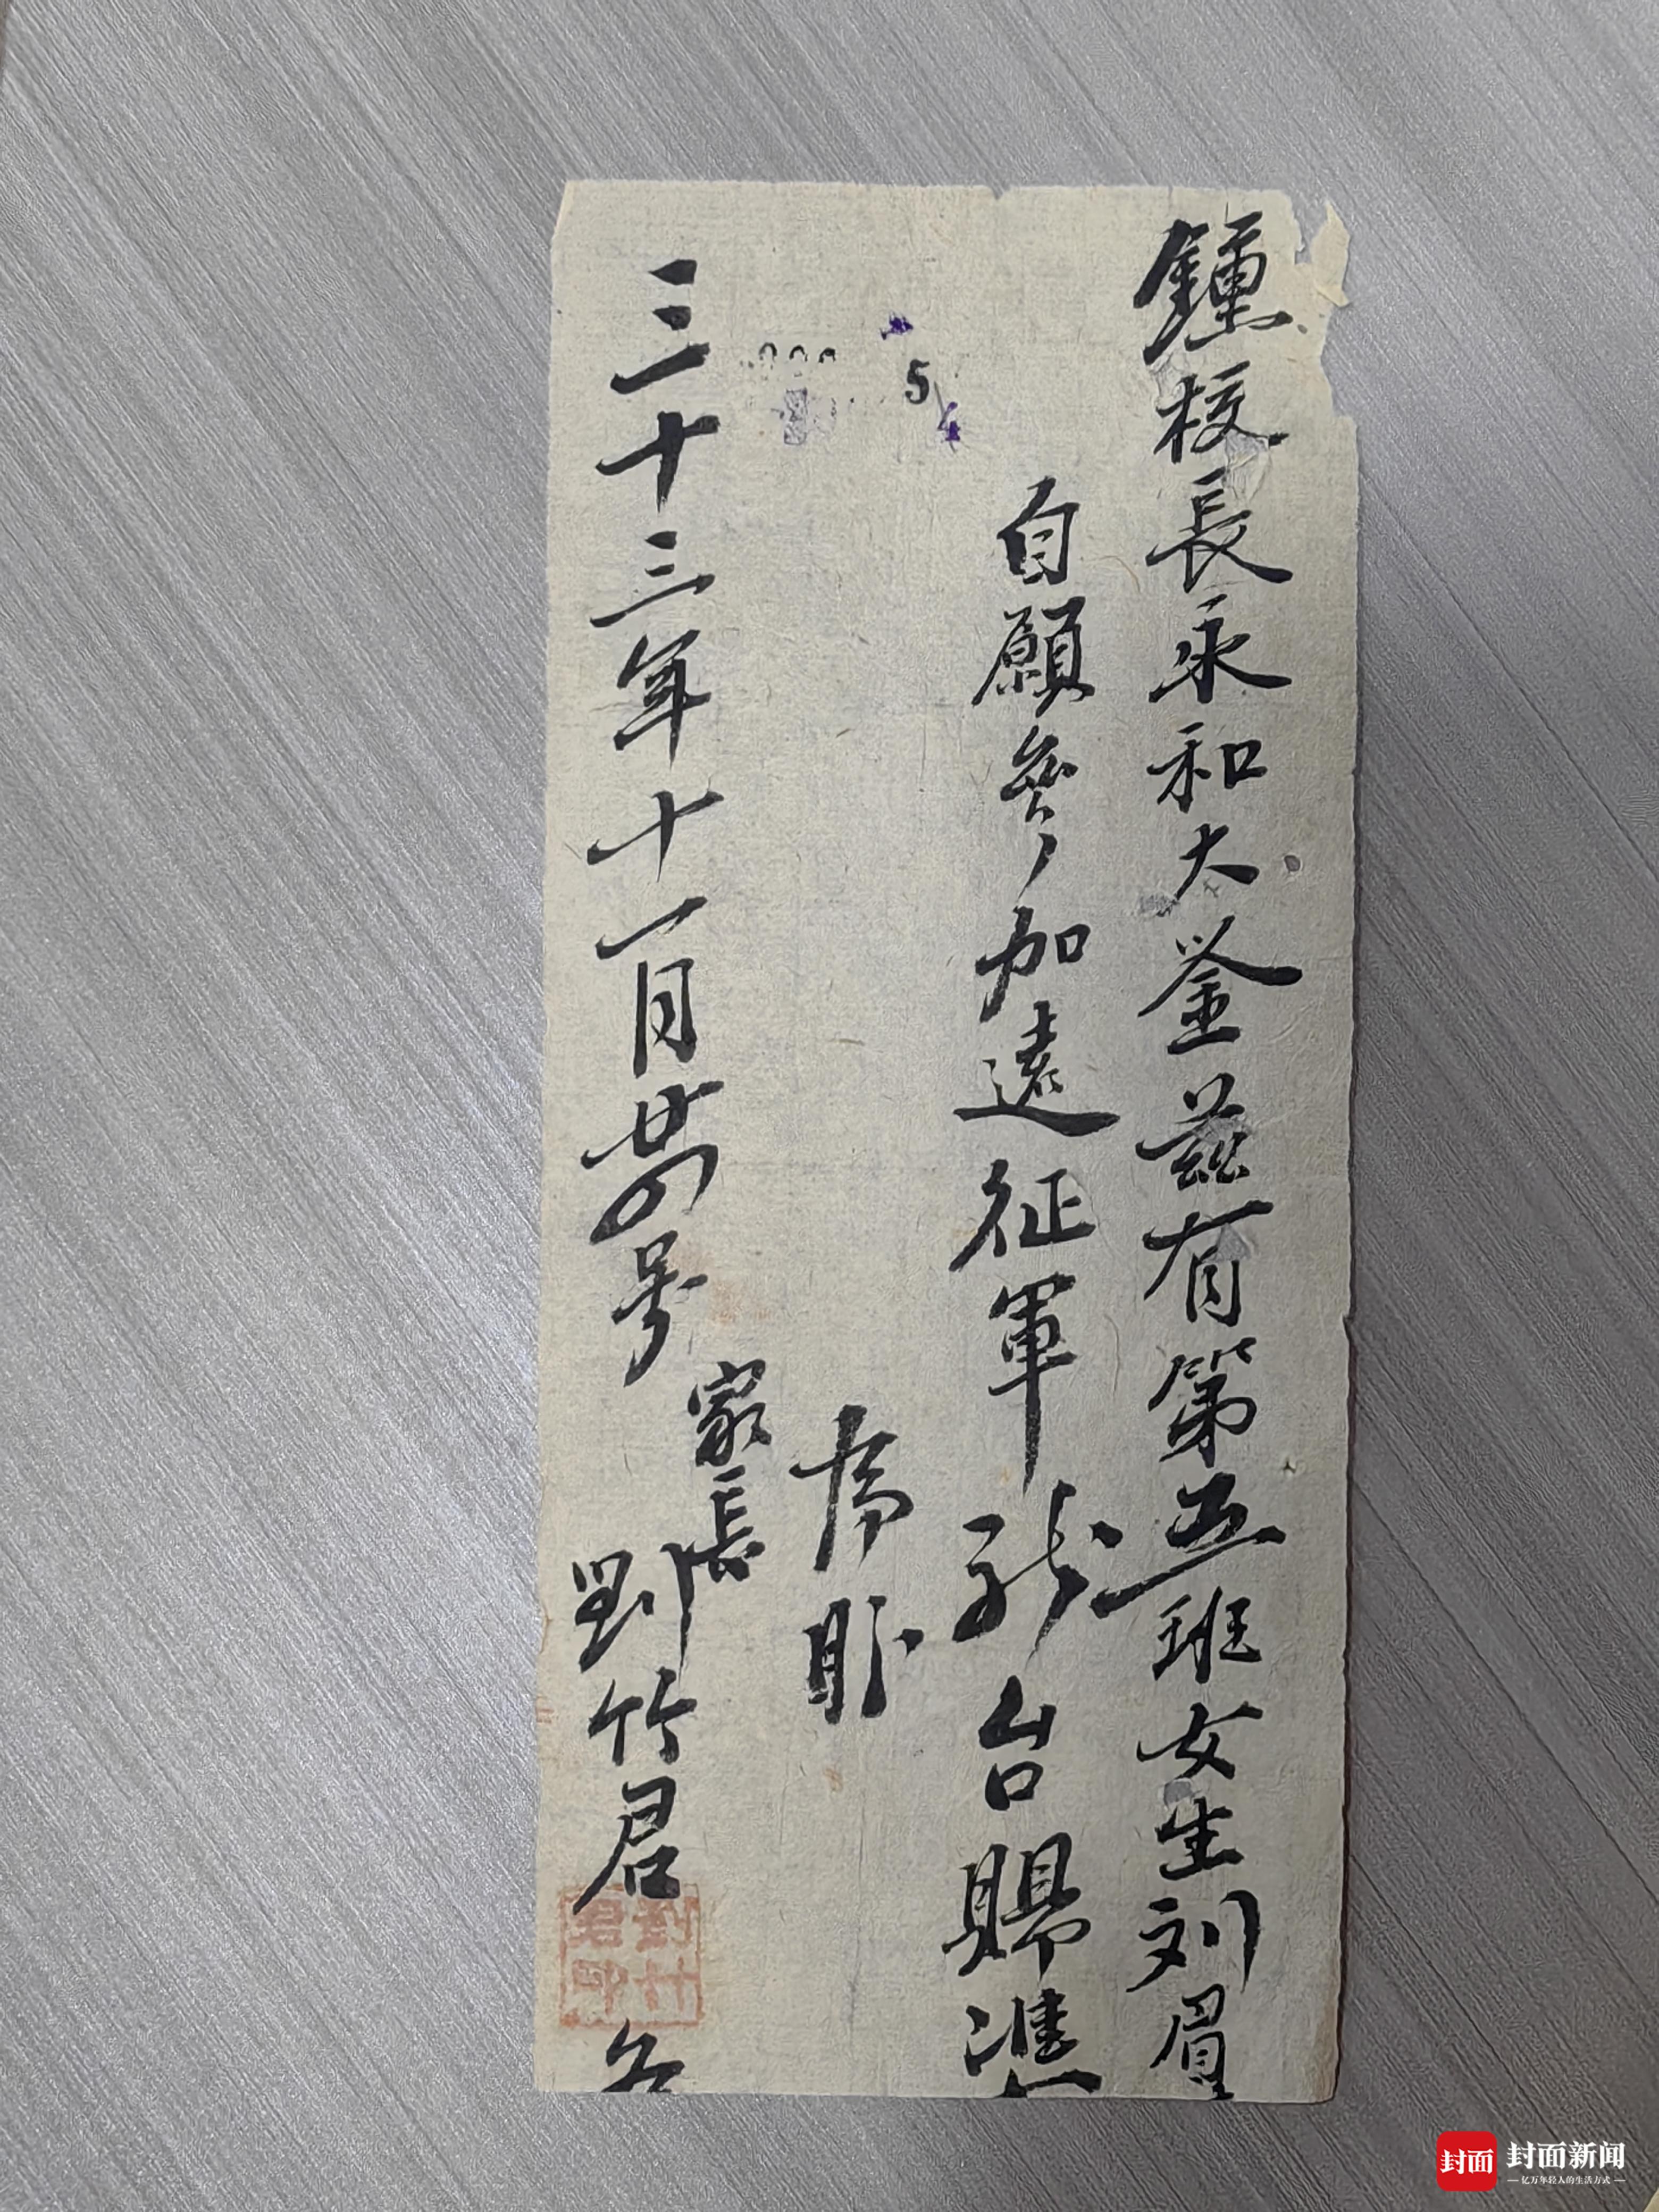 鍾校長永和大鉴兹有第五班女生刘眉
自願参加遠征軍 台賜准
盼
5
4
三十三年十一月廿四号
家長
劉竹君
劉竹君印
封面
封面新闻
亿万年轻人的生活方式